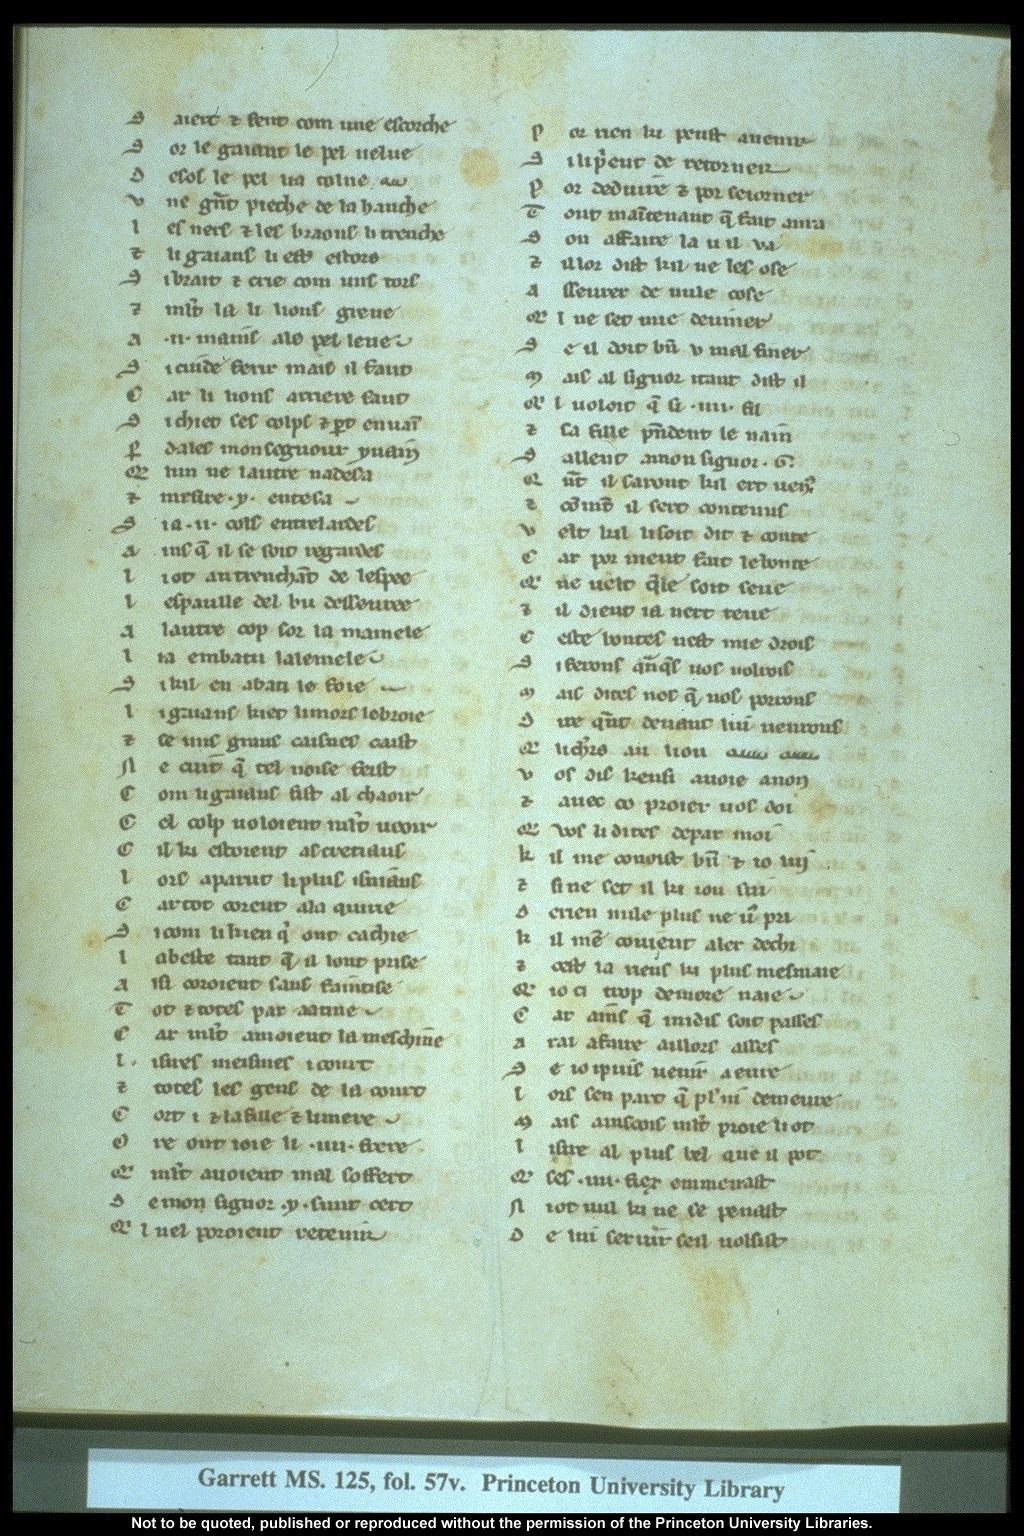 S aiert ⁊ fent com une escorche
S or le gaiant le pel uelue
D esos le pel
U ne gñt pieche de la hanche
L es ners ⁊ les braons li trenche
⁊ li gaians li est estors
S i brait ⁊ crie com uns tors
⁊ mľt la li lions greue
A .ii. mains also pel leue
S i cuide ferir mais il faut
C ar li lions arriere saut
S i chiet ses colps ⁊
P dales monsegnour yuain
Q lun ne lautre nadesa
⁊ mesire .y. entesa
S ia .ii. cols entrelardes
A ins q̃ il se soit regardes
L iot au trenchãt de lespee
L espaulle del bu desseuree
A lautre cop sor la mamele
L ia embatu lalemele
S i kil en abati le foie
L i gaians kiet limors lebroie
⁊ se uns grans caisnes caist
N e cuit q̃ tel noise feist
C om li gaians fist al chaoir
C el colp uoloient mľt ueoir
C il ki estoient as creniaus
L ors aparut li plus isniaus
C ar tot corent ala quirie
S i com li kien q̇ ont cachie
L abeste tant q̃ il lont prise
A isi coroient sans faintise
T ot ⁊ totes par aatine
C ar mľt amoient la meschine
L i sires meismes i court
⁊ totes les gens de la court
C ort i ⁊ lafille ⁊ limere
O re ont ioie li .iiii. frere
Q mľt auoient mal soffert
D e mon signor .y. sunt cert
Q l nel poroient retenir
P or rien ki peust auenir
S i lip̃ent de retorner
P or deduire ⁊ por seiorner
T out maĩtenant q̃ fait aura
S on affaire la u il va
⁊ illor dist kil ne les ose
A sseurer de nule cose
Q l ne set mie deuiner
S e il doit bñ v mal finer
M ais al signor itant dist il
Q l voloit q̃ si .iiii. fil
⁊ sa fille pñdent le nain
S aillent amon signor .G.
Q ñt il saront kil ert
⁊ cõmt il sert contenus
V elt kil lisoit dit ⁊ conte
C ar por nient fait lebonte
Q ne uelt q̃le soit seue
⁊ il dient ia nert teue
C este bontes nest mie drois
S i ferons q̃nq̃s uos uolrois
M ais dites nos q̃ nos porrons
D ire q̃nt deuant lui uenrons
V os dis kensi auoie anon
⁊ auec co proier uos doi
Q vos li dites depar moi
K il me conoist bñ ⁊ io lui
⁊ si ne set il ki iou sui
D e rien nule plus ne ũ pri
K il mẽ couient aler dechi
⁊ cest la riens ki plus mesmaie
Q io ci trop demore naie
C ar ains q̃ midis soit passes
A rai afaire aillors asses
S e io i puis uenir a eure
L ors sen part q̃ pľ ni demeure
M ais ainscois mľt proie li ot
L i sire al plus bel que il pot
Q ses .iiii. fiex emmenast
N iot nul ki ne se penast
D e lui seruir seil uolsist
Garrett MS. 125, fol. 57v. Princeton University Library
Not to be quoted, published or reproduced without the permission of the Princeton University Libraries.